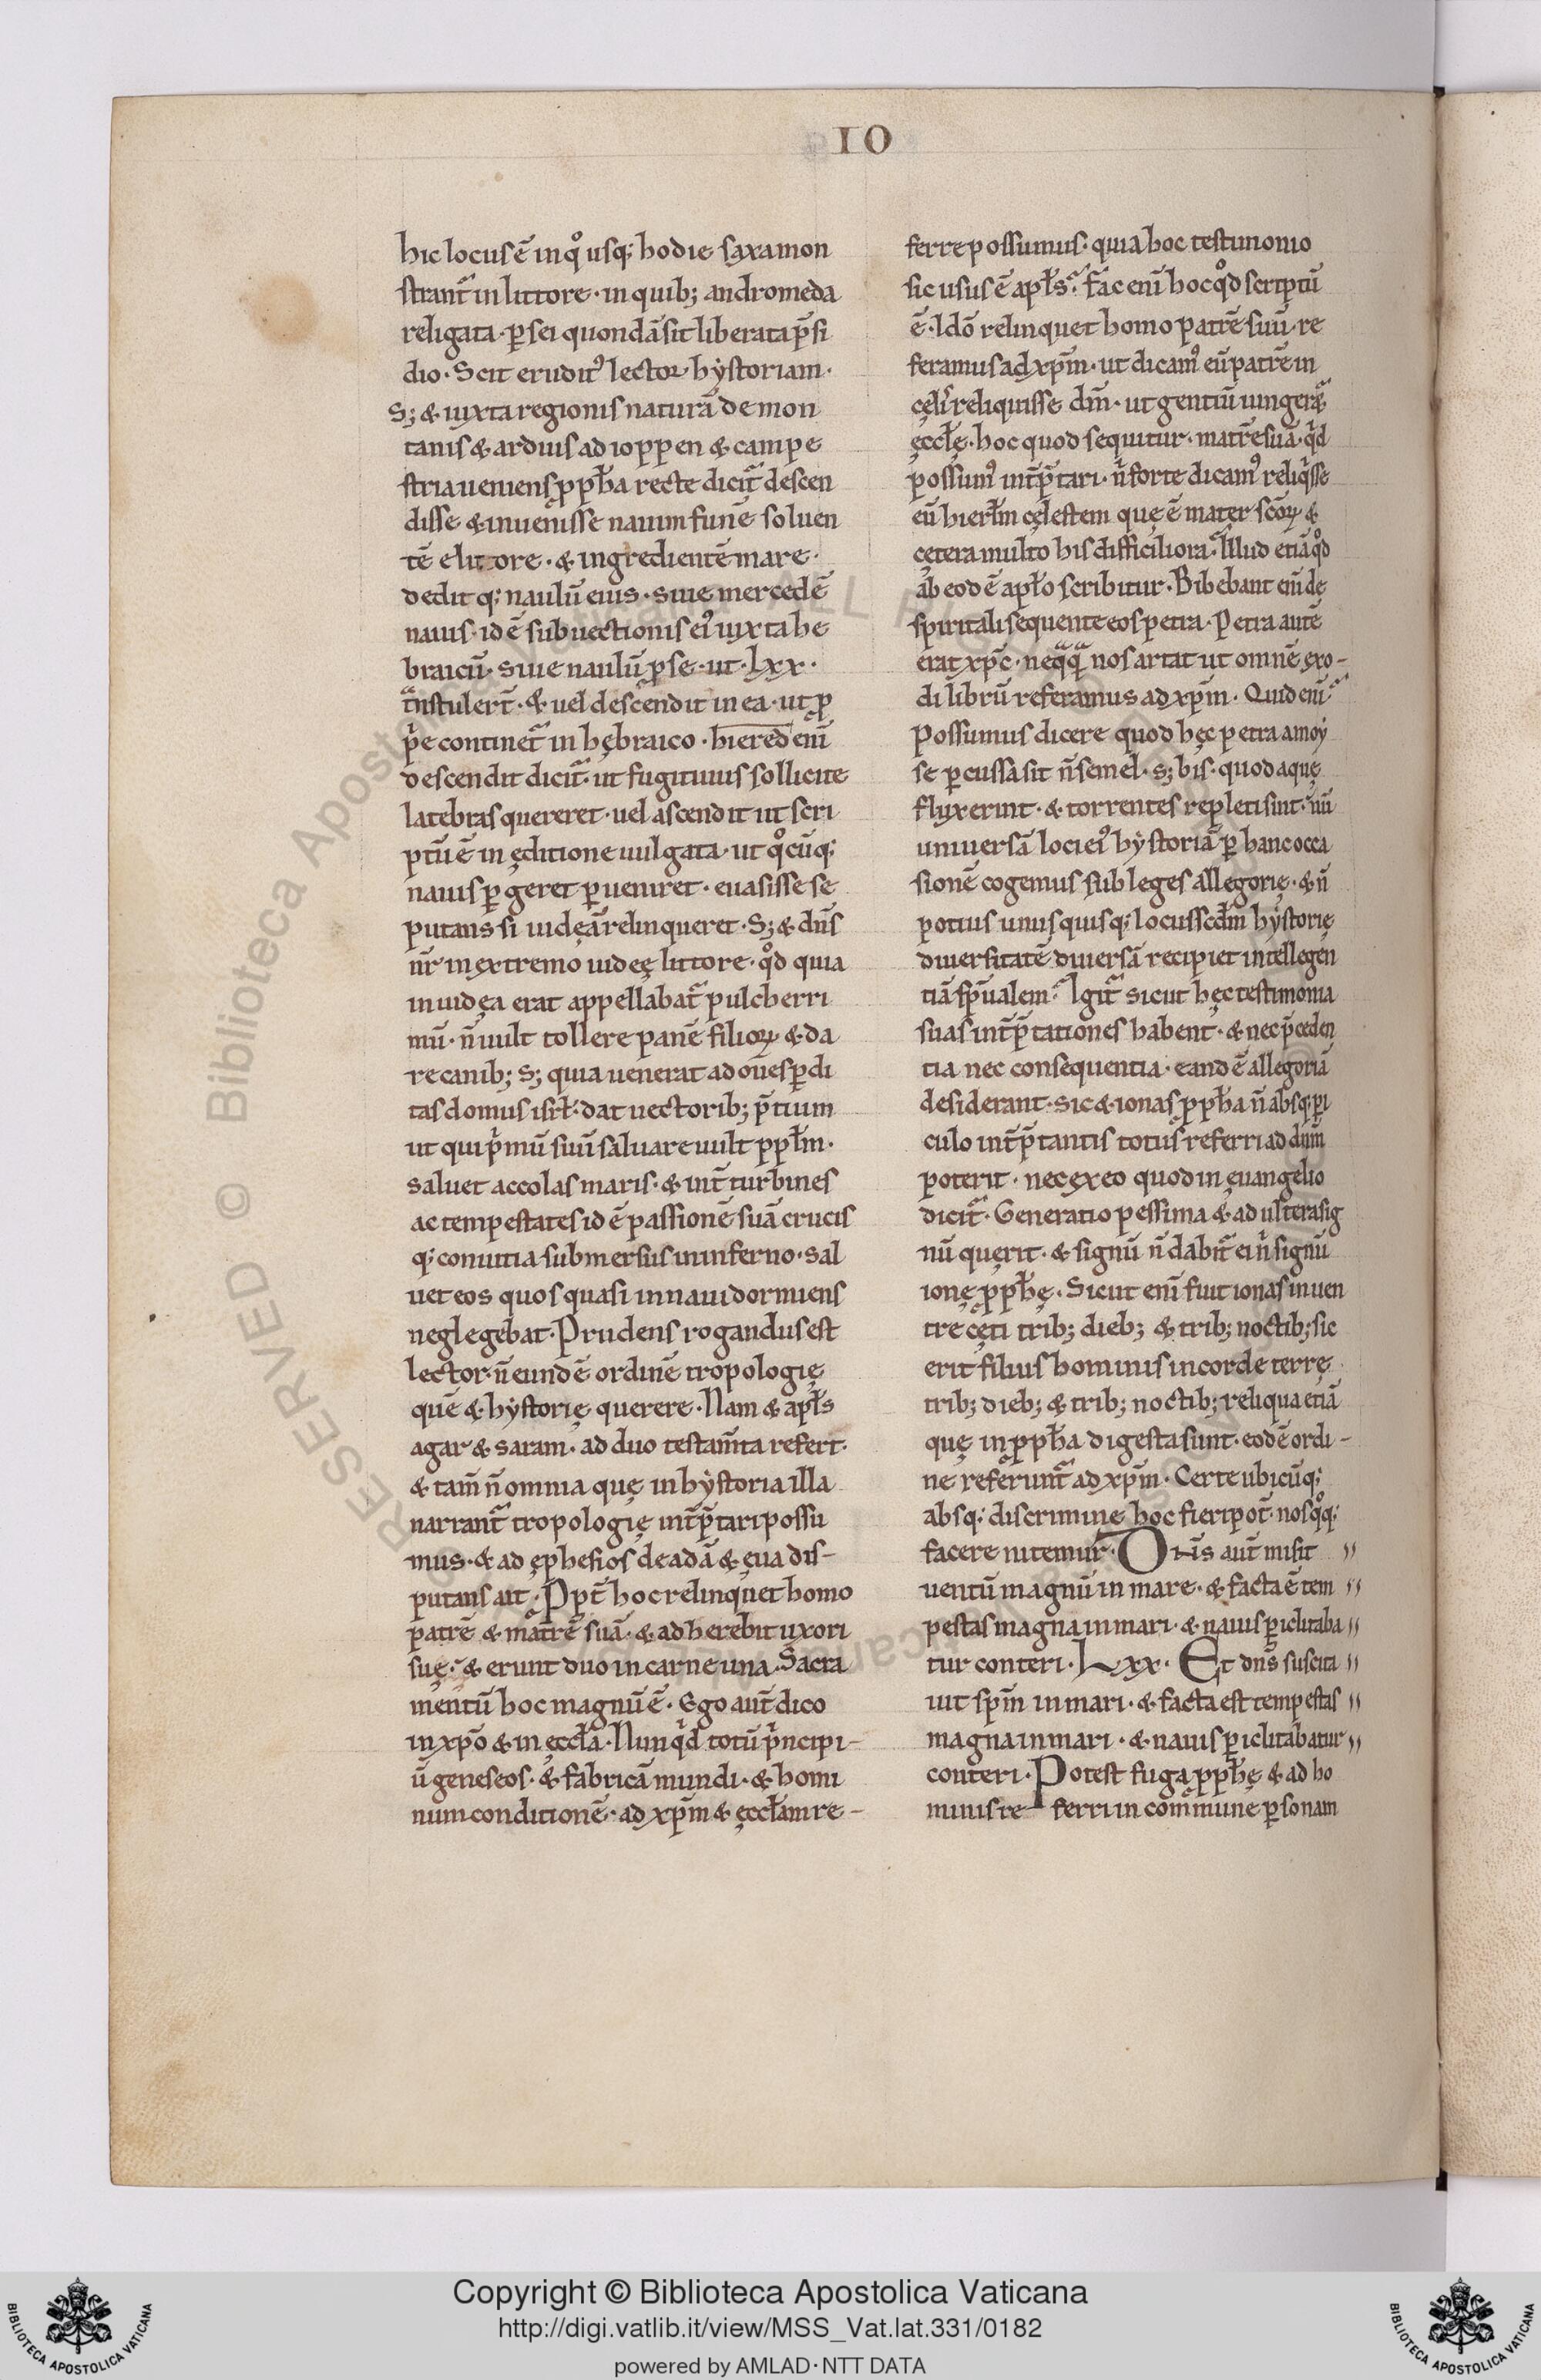 IO
hic locus ē in qͦ usq; hodie saxa mon
strant᷑ in littore · in quib; andromeda
religata · ꝑsei quondā sit liberata p̄si
dio · Scit erudit᷒ lector hẏstoriam ·
S; & iuxta regionis naturā de mon
tanis & arduis ad ioppen & campe
stria ueniens ꝓph̄a recte dicit᷑ descen
disse & inuenisse nauim funē soluen
tē e littore · & ingredientē mare ·
dedit q; naulū eius · siue mercedē
nauis · id ē subuectionis ei᷒ iuxta he
braicū · siue naulū ꝓ se · ut · lxx ·
t̄nstulert̄ · & uel descendit in ea · ut ꝓ
pͥe continet᷑ in hębraico · hiered enī
descendit dicit᷑ · ut fugitiuus sollicite
latebras quereret · uel ascendit ut scri
ptū ē in ęditione uulgata · ut qͦcūq;
nauis ꝑgeret ꝑueniret · euasisse se
putans si iudęā relinqueret · S; & dn̄s
nr̄ in extremo iudeę littore · qͦd quia
in iudęa erat appellabat᷑ pulcherri
mū · n̄ uult tollere panē filioꝝ & da
re canib; s; quia uenerat ad oūes ꝑdi
tas domus isrł · dat uectorib; p̄tium
ut qui pͥmū suū saluare uult ꝓpłm ·
saluet accolas maris · & int̄ turbines
ac tempestates id ē passionē suā crucis
q; conuitia submersus in inferno · sal
uet eos quos quasi in naui dormiens
neglegebat · Prudens rogandus est
lector · n̄ eundē ordinē tropologię
quē & hẏstorię querere · Nam & apłs
agar & saram · ad duo testam̄ta refert ·
& tam̄ n̄ omnia quę in hẏstoria illa
narrant᷑ tropologię int̄p̄tari possu
mus · & ad ęphesios de adā & ęua dis-
putans ait · Ppt̄ hoc relinquet homo
patrē & mat̄rē suā · & adherebit uxori
suę · & erunt duo in carne una · Sacra
mentū hoc magnū ē · Ego aut̄ dico
in xp̄o & in ęccła · Nunqͥd totū pͥncipi-
ū geneseos · & fabricā mundi · & homi
num conditionē · ad xp̄m & ęccłam re-
ferre possumus · quia hoc testimonio
sic usus ē apłs · fac enī hoc qͦd scriptū
ē · Idō relinquet homo patrē suū · re
feramus ad xp̄m · ut dicam᷒ eū patrē in
cęlis reliquisse dm̄ · ut gentiū iungeret᷑
ęccłę · hoc quod sequitur · matrē suā · qͥd
possum᷒ int̄p̄tari · nͥ forte dicam᷒ reliqͥsse
eū hierłm cęlestem quę ē mater scōꝝ &
cętera multo his difficiliora · Illud etiā qͦd
ab eodē apło scribitur · Bibebant enī de
spiritali sequente eos petra · Petra autē
erat xp̄c · neqͣqͣ nos artat ut omnē exo-
di librū referamus ad xp̄m · Quid enī
Possumus dicere quod hęc petra a moẏ
se ꝑcussa sit n̄ semel · s; bis · quod aquę
fluxerint · & torrentes repleti sint · nū
uniuersā loci ei᷒ hẏstoriā ꝑ hanc occa
sionē cogemus sub leges allegorię · & n̄
potius unusquisq; locus scd̄m hẏstorię
diuersitatē diuersā recipiet intellegen
tiā sp̄ualem · Igit᷑ sicut hęc testimonia
suas int̄p̄tationes habent · & nec p̄ceden
tia nec consequentia · eandē allegoriā
desiderant · sic & ionas ꝓph̄a n̄ absq; ꝑi
culo int̄p̄tantis totus referri ad dnm̄
poterit · nec ex eo quod in euangelio
dicit᷑ · Generatio pessima & adultera sig
nū querit · & signū n̄ dabit᷑ ei nͥ signū
ionę ꝓph̄ę · Sicut enī fuit ionas in uen
tre cęti trib; dieb; & trib; noctib; sic
erit filius hominis in corde terrę ·
trib; dieb; & trib; noctib; reliqua etiā
quę in ꝓph̄a digesta sunt · eodē ordi-
ne referunt᷑ ad xp̄m · Certe ubicūq;
absq; discrimine hoc fieri pot̄ · nos qͦq;
facere nitemur · Dn̄s aut̄ misit
uentū magnū in mare · & facta ē tem
pestas magna in mari · & nauis ꝑiclitaba
tur conteri · Lxx · Et dn̄s suscita
uit sp̄m in mari · & facta est tempestas
magna in mari · & nauis ꝑiclitabatur
conteri · Potest fuga ꝓph̄ę & ad ho
minis referri in com̄mune ꝑsonam
Copyright © Biblioteca Apostolica Vaticana
http://digi.vatlib.it/view/MSS_Vat.lat.331/0182
powered by AMLAD·NTT DATA
BIBLIOTECA APOSTOLICA VATICANA
BIBLIOTECA APOSTOLICA VATICANA